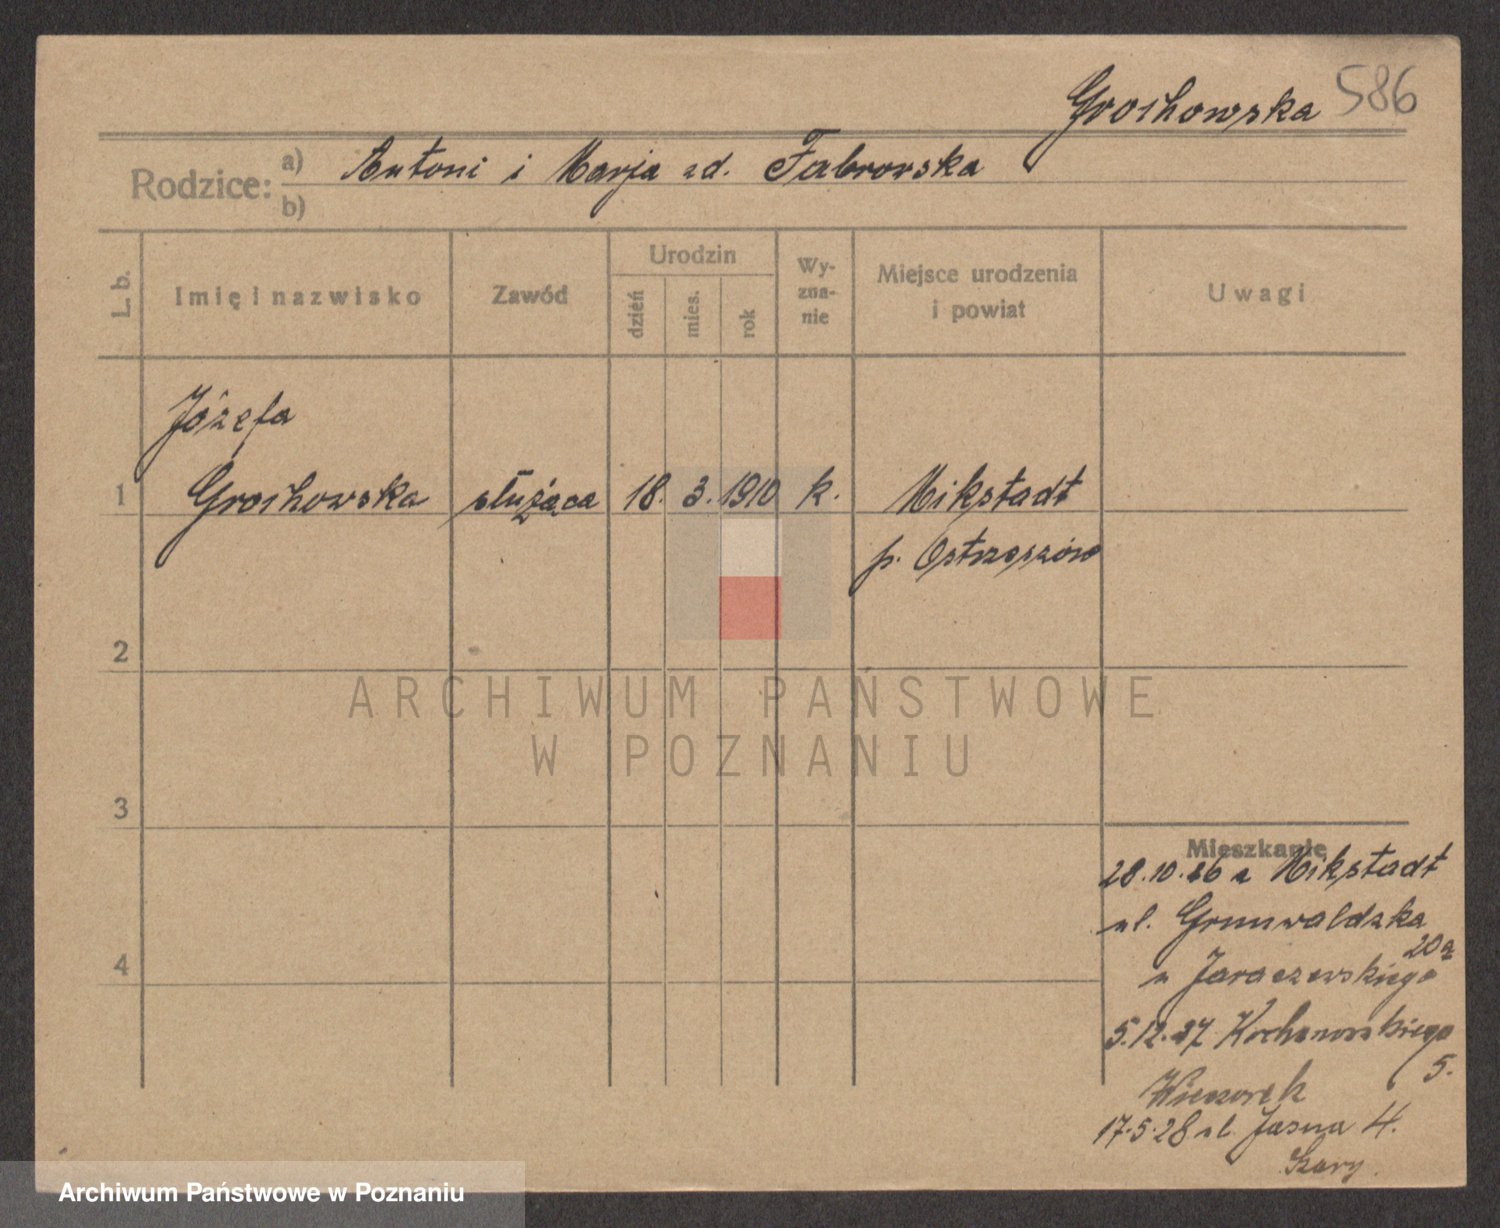 Grochowska 586
Rodzice: a) Antoni i Marja zd. Fabrowska
b)
L. b.
Imię i nazwisko
Zawód
Urodzin
dzień
mies.
rok
Wy-
zna-
nie
Miejsce urodzenia
i powiat
Uwagi
Józefa
1 Grochowska służąca 18. 3. 1910 k. Mikstadt
p. Ostrzeszów
2
ARCHIWUM PAŃSTWOWE
W POZNANIU
3
Mieszkanie
28.10.26 z Mikstadt
ul. Grunwaldzka
20a
4
u Jaraczewskiego
5.12.27 Kochanowskiego
5.
Wieczorek
17.5.28 ul. Jasna 4.
Szary.
Archiwum Państwowe w Poznaniu